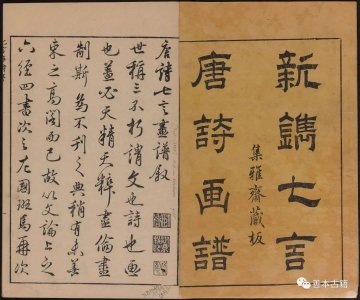 新鐫七言
唐詩画譜
集雅齋藏板
唐詩七言畫譜叙
世稱三不朽謂文也詩也画
也盖必天精天粹盡倫盡
制斯為不刊之典稍有未善
束之高閣而已故以文論上之
六經四書次之左國班馬再次
善本古籍